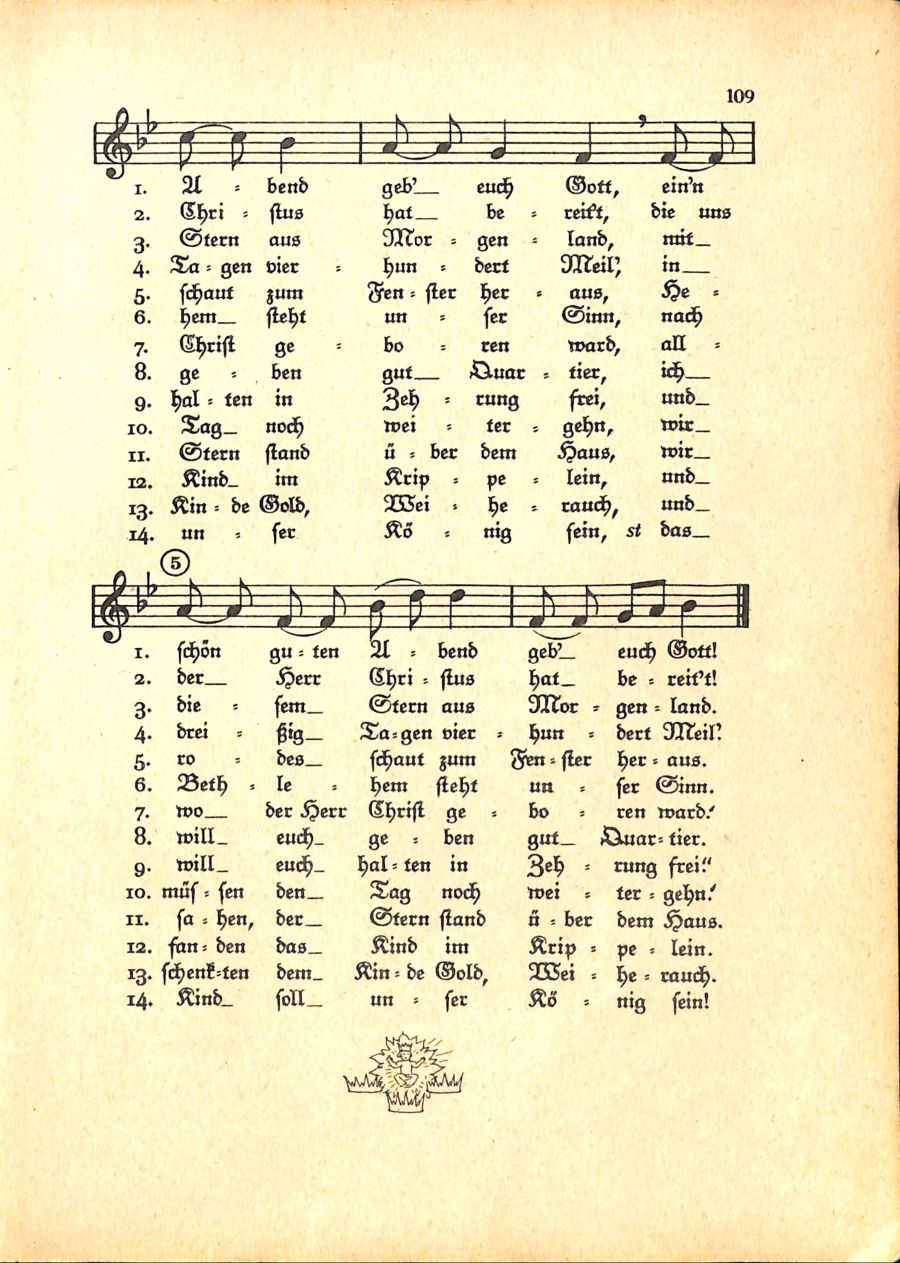 109
1. A - bend geb'_ euch Gott, ein'n
2. Chri - stus hat_ be - reit't, die uns
3. Stern aus Mor - gen - land, mit_
4. Ta - gen vier - hun - dert Meil', in_
5. schaut zum Fen - ster her - aus, He -
6. hem_ steht un - ser Sinn, nach
7. Christ ge - bo - ren ward, all -
8. ge - ben gut_ Quar - tier, ich_
9. hal - ten in Zeh - rung frei, und_
10. Tag_ noch wei - ter - gehn, wir_
11. Stern stand ü - ber dem Haus, wir_
12. Kind_ im Krip - pe - lein, und_
13. Kin - de Gold, Wei - he - rauch, und_
14. un - ser Kö - nig sein, st das_
5
1. schön gu - ten A - bend geb'_ euch Gott!
2. der_ Herr Chri - stus hat_ be - reit't!
3. die - sem_ Stern aus Mor - gen - land.
4. drei - ßig_ Ta - gen vier - hun - dert Meil'.
5. ro - des_ schaut zum Fen - ster her - aus.
6. Beth - le - hem steht un - ser Sinn.
7. wo_ der Herr Christ ge - bo - ren ward.‘
8. will_ euch_ ge - ben gut_ Quar - tier.
9. will_ euch_ hal - ten in Zeh - rung frei.“
10. müs - sen den_ Tag noch wei - ter - gehn.‘
11. sa - hen, der_ Stern stand ü - ber dem Haus.
12. fan - den das_ Kind im Krip - pe - lein.
13. schenk - ten dem_ Kin - de Gold, Wei - he - rauch.
14. Kind_ soll_ un - ser Kö - nig sein!